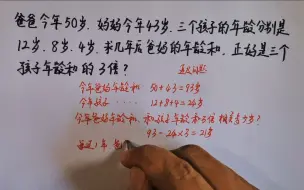 爸爸今年50岁.妈妈今年43岁.三个孩子的年龄分别是
12岁.8岁.4岁.求几年后爸妈的年龄和.正好是三个
孩子年龄和的3倍?
今年爸妈年龄和 50+43=93岁
今年孩子 12+8+4=24岁
今年爸妈年龄和.和孩子年龄和的3倍 相差多少岁?
93-24×3=21岁
每过1年